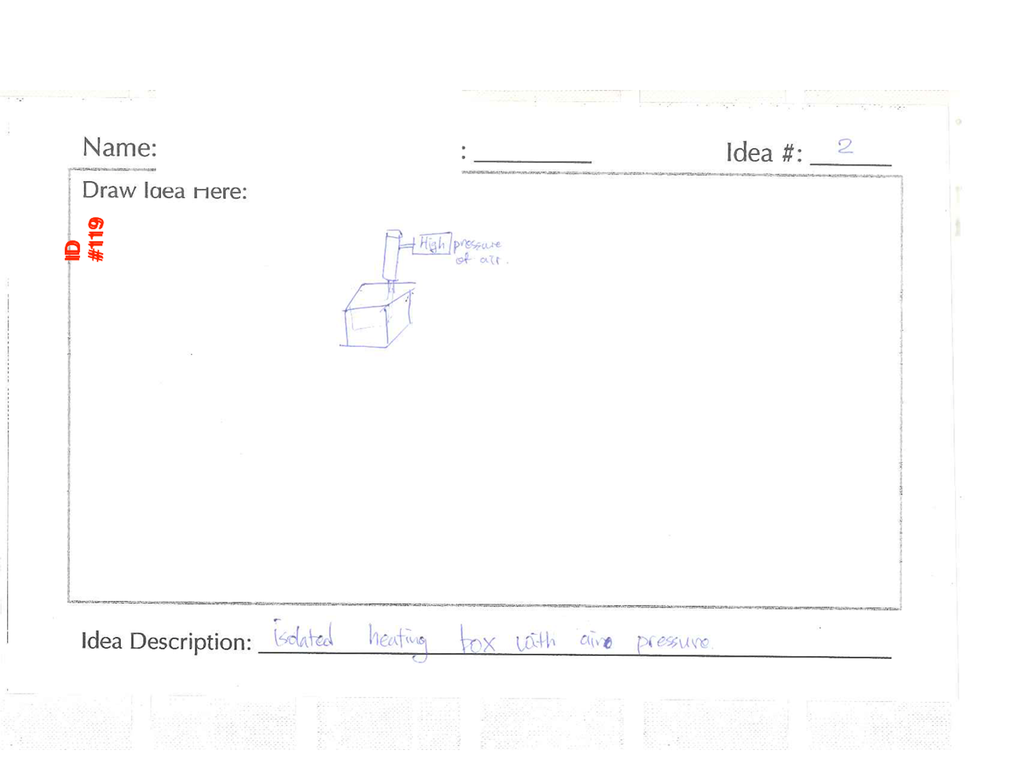 Name:
: 
Idea #: 2
Draw Idea Here:
ID
#119
High pressure
of air.
Idea Description: isolated heating box with air pressure.